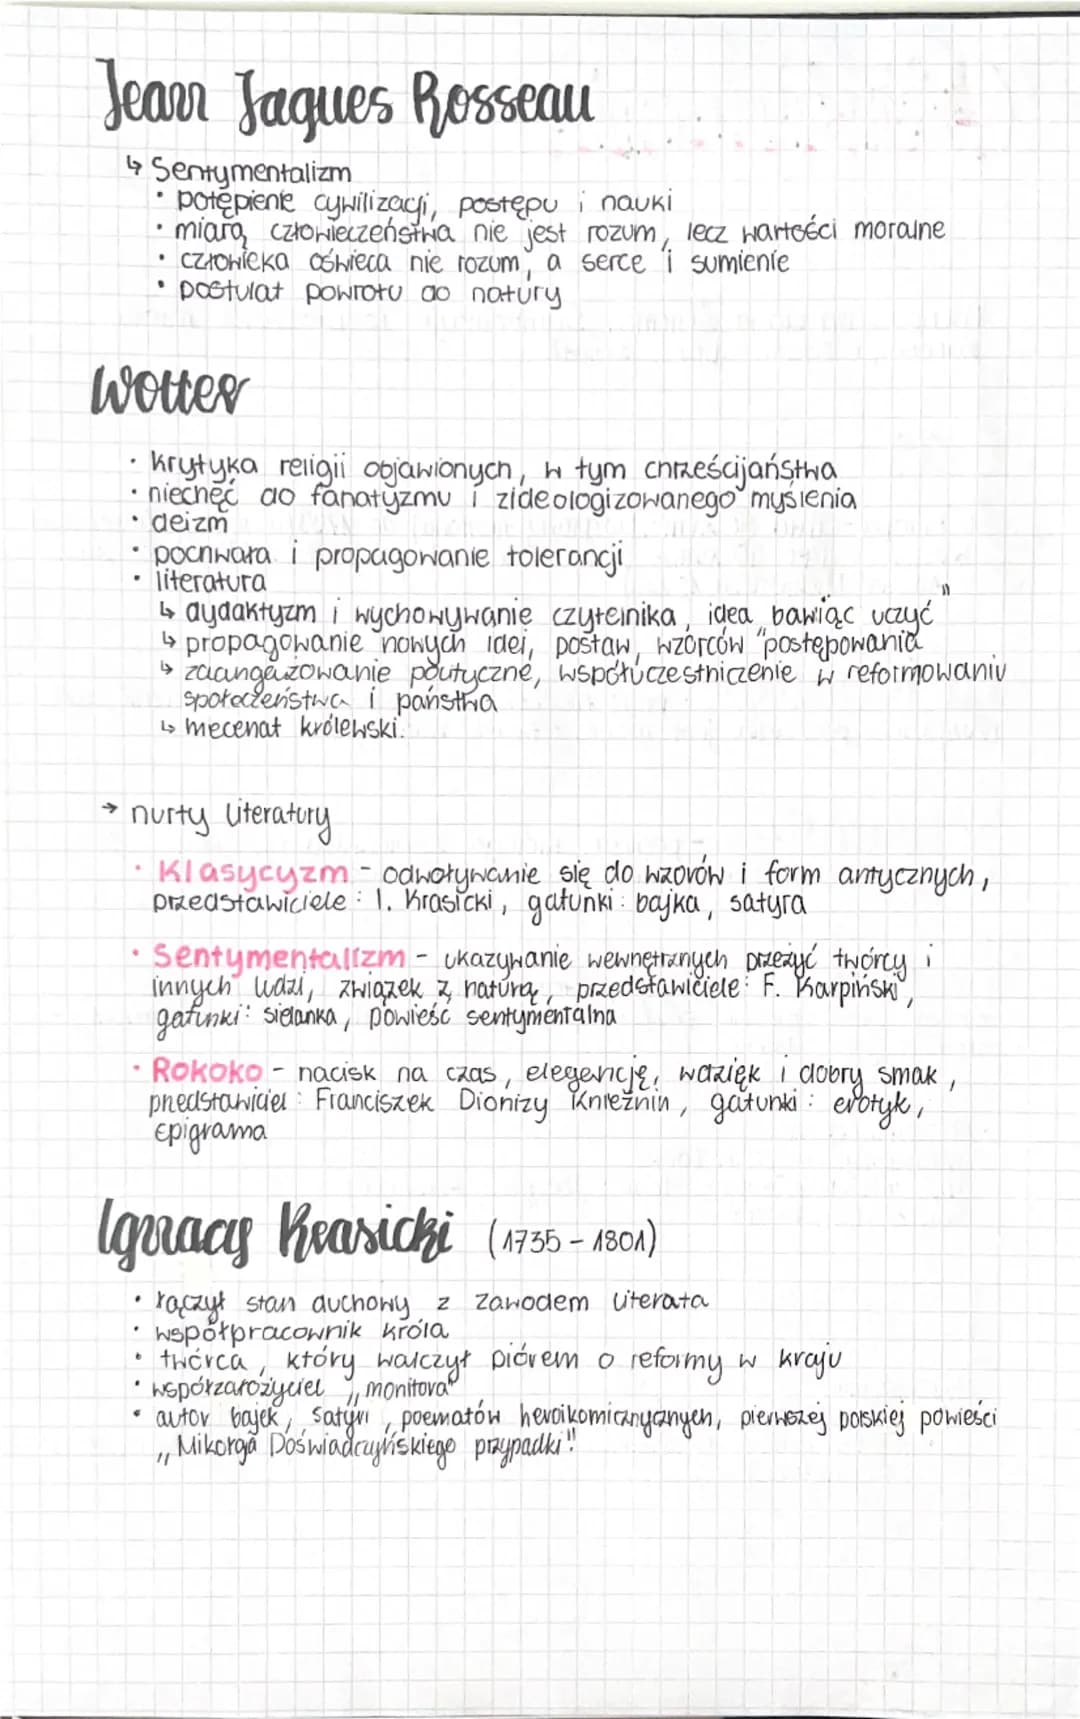 Jean Jaques Rosseau
↳ Sentymentalizm
• potępienie cywilizacji, postępu i nauki
• miarą człowieczeństwa nie jest rozum, lecz wartości moralne
• człowieka oświeca nie rozum, a serce i sumienie
• postulat powrotu do natury
Wolter
• krytyka religii objawionych, w tym chrześcijaństwa
• niechęć do fanatyzmu i zideologizowanego myślenia
• deizm
• pochwała i propagowanie tolerancji
• literatura
↳ dydaktyzm i wychowywanie czytelnika, idea „bawiąc uczyć"
↳ propagowanie nowych idei, postaw, wzorców postępowania
↳ zaangażowanie polityczne, współuczestniczenie w reformowaniu
społeczeństwa i państwa
↳ mecenat królewski.
→ nurty literatury
• Klasycyzm - odwoływanie się do wzorów i form antycznych,
przedstawiciele: I. Krasicki, gatunki: bajka, satyra
• Sentymentalizm - ukazywanie wewnętrznych przeżyć twórcy i
innych ludzi, związek z naturą, przedstawiciele: F. Karpiński,
gatunki: sielanka, powieść sentymentalna
• Rokoko - nacisk na czas, elegencję, wdzięk i dobry smak,
przedstawiciel: Franciszek Dionizy Knieźnin, gatunki: erotyk,
epigrama
Ignacy Krasicki (1735 - 1801)
• łączył stan duchowy z zawodem literata
• współpracownik króla
• twórca, który walczył piórem o reformy w kraju
• współzałożyciel „monitora"
• autor bajek, satyri, poematów heroikomicznycznych, pierwszej polskiej powieści
„Mikołaja Doświadczyńskiego przypadki"